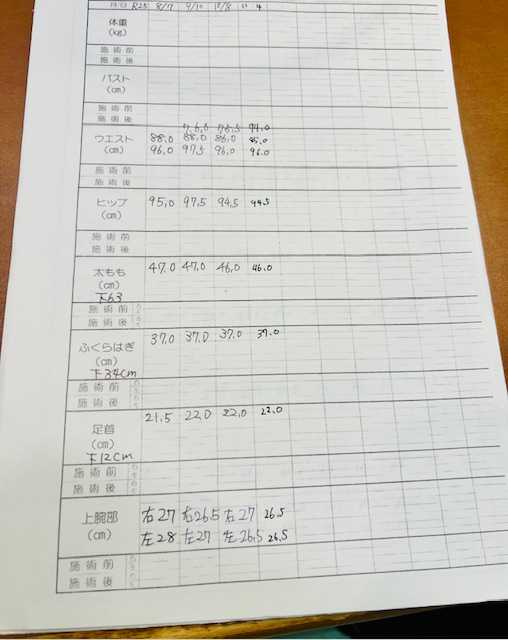 月日 R25 8/7 9/10 10/8 11 4
体重
(kg)
施術前
施術後
バスト
(cm)
施術前
施術後
76.0 76.5 74.0
ウエスト 88.0 88.0 86.0 85.0
(cm) 96.0 97.5 96.0 96.0
施術前
施術後
ヒップ 95.0 97.5 94.5 94.5
(cm)
施術前
施術後
太もも 47.0 47.0 46.0 46.0
(cm)
下63
施術前
施術後
ふくらはぎ 37.0 37.0 37.0 37.0
(cm)
下34cm
施術前
施術後
足首 21.5 22.0 22.0 22.0
(cm)
下12cm
施術前
施術後
上腕部 右27 右26.5 右27 26.5
(cm) 左28 左27 左26.5 26.5
施術前
施術後